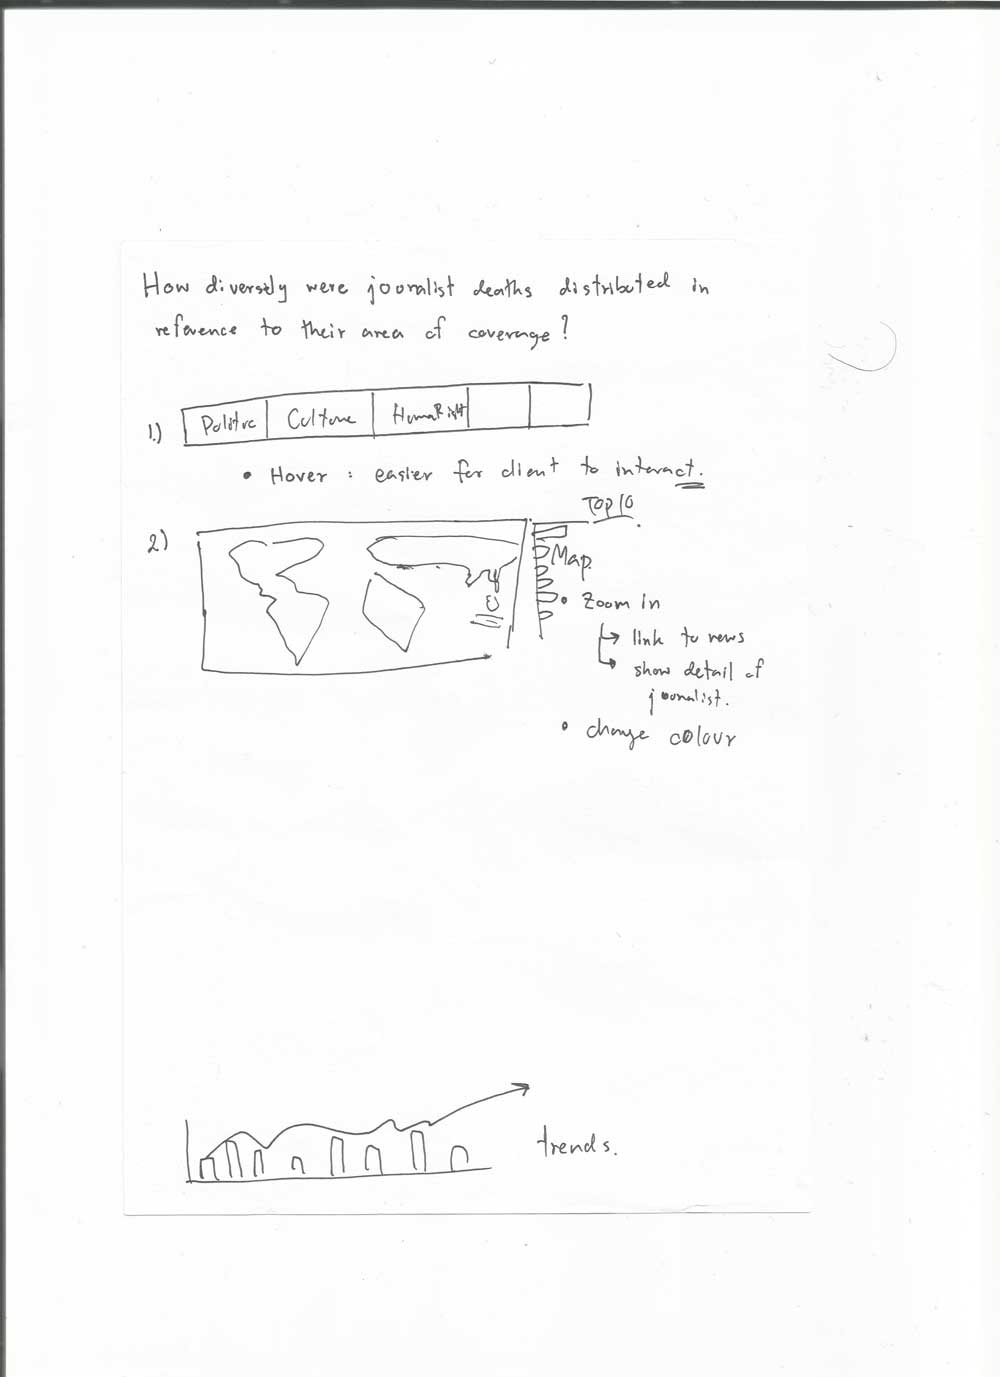 How diversly were jouralist deaths distributed in
reference to their area of coverage?
1.)
Politic Culture HumaRight
• Hover : easier for client to interact.
Top 10
2)
Map.
• Zoom in
link to news
show detail of
journalist.
• change colour
trends.